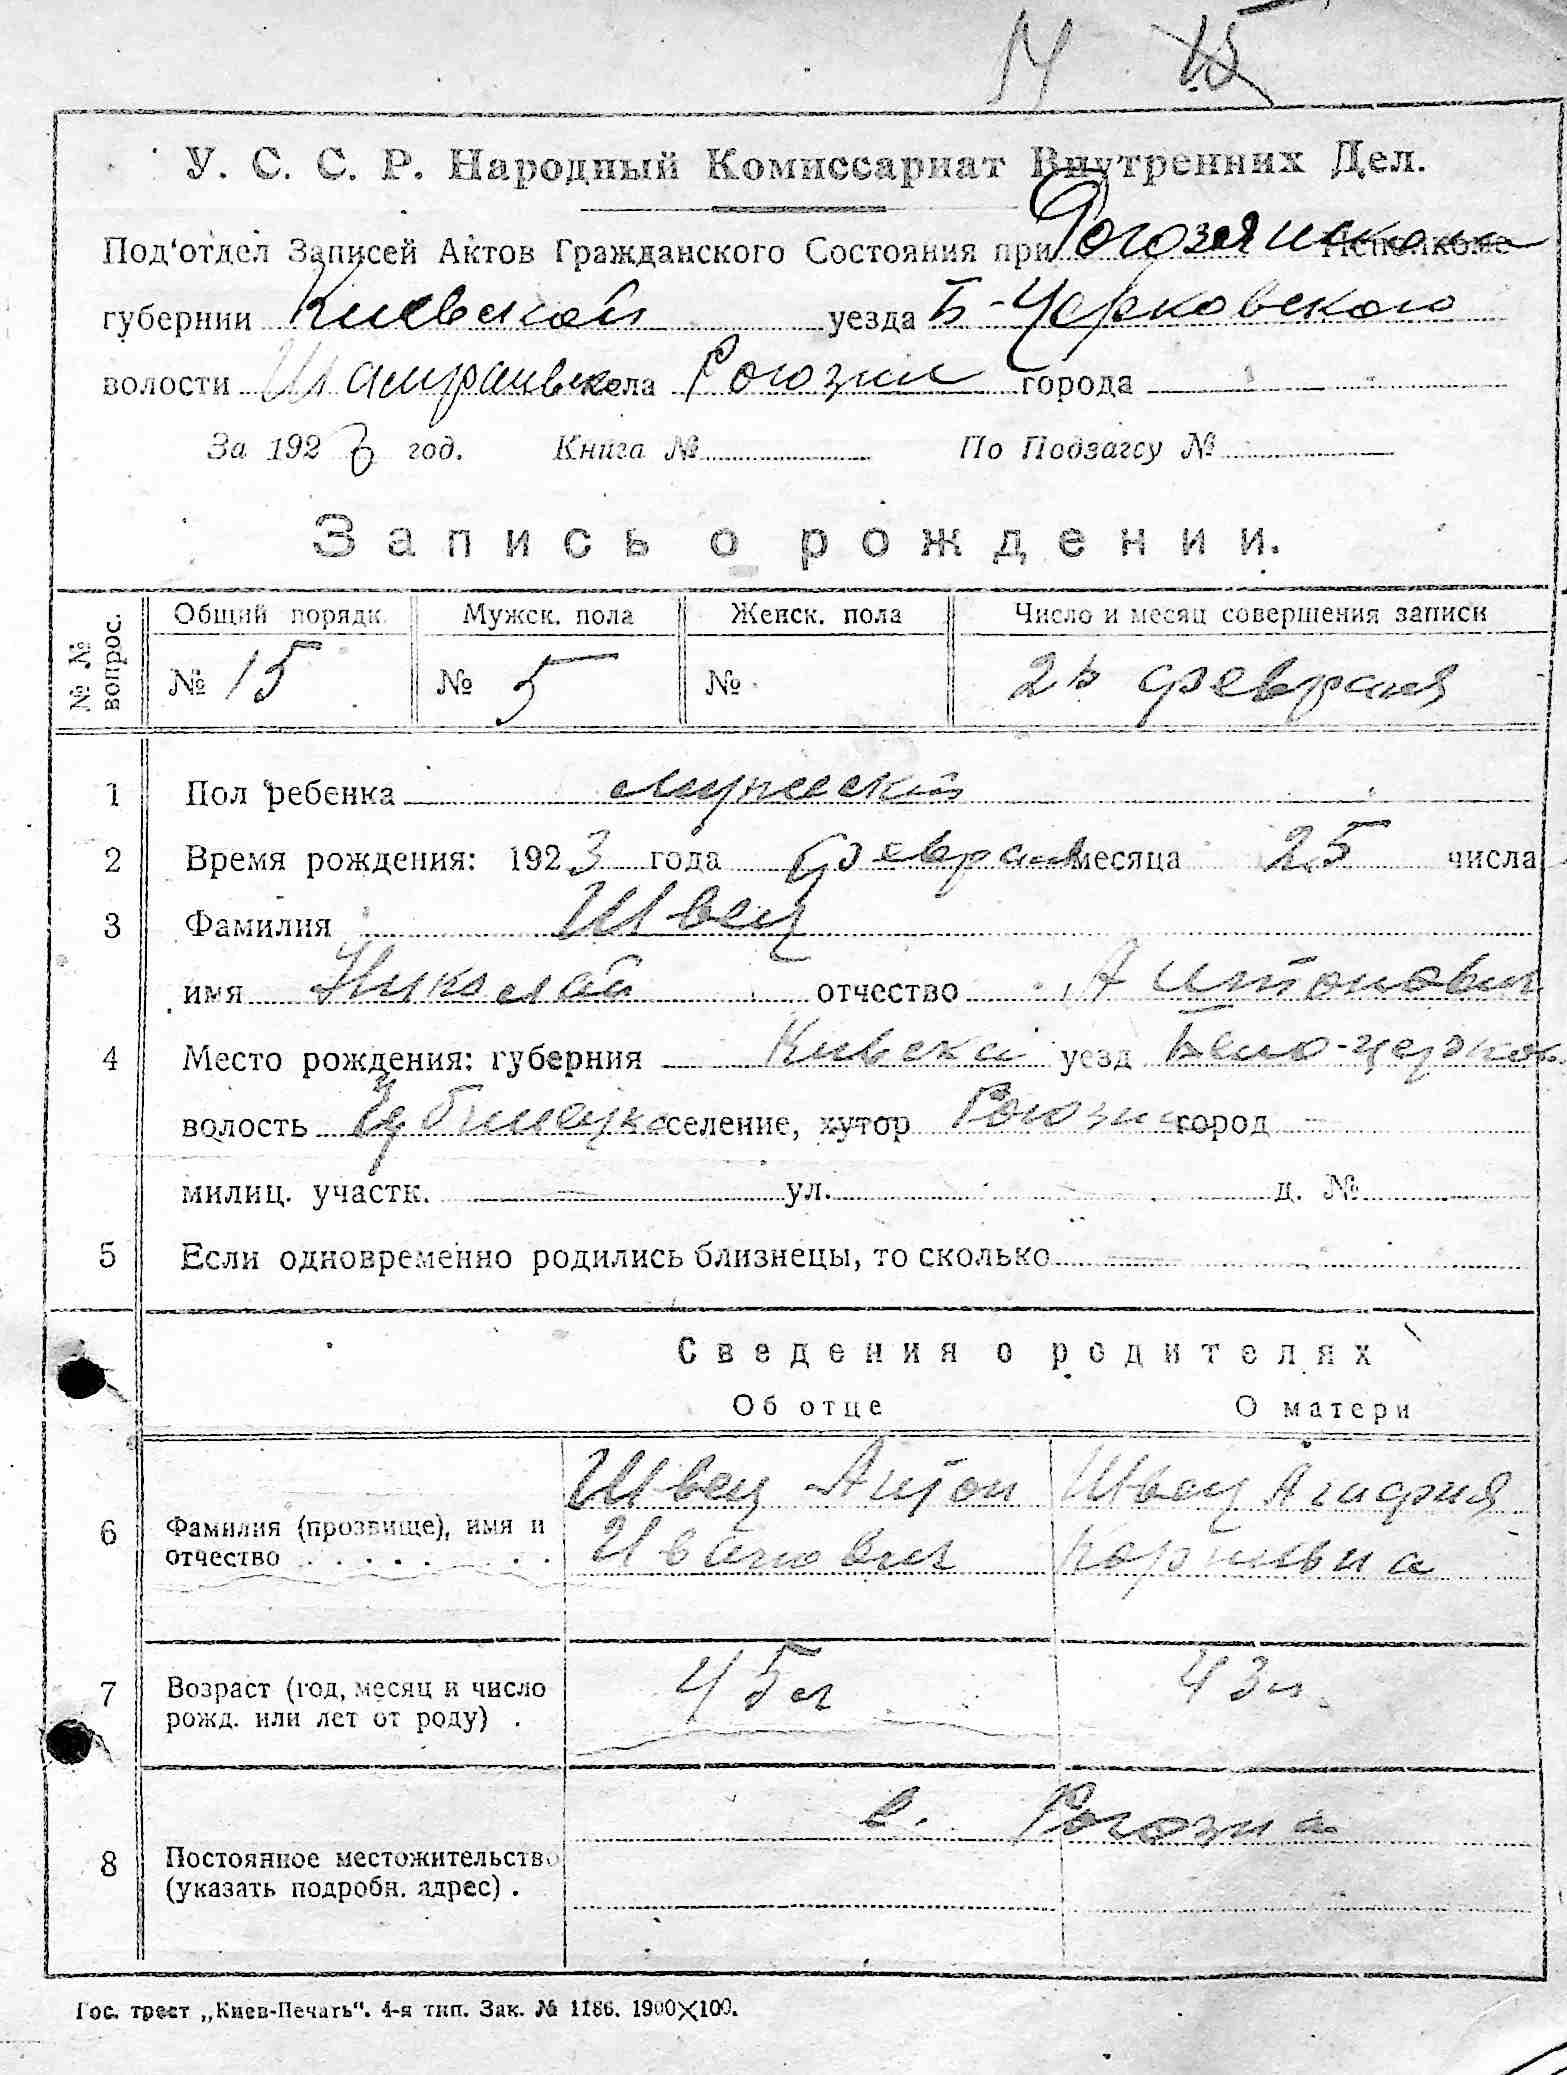 14 15
У. С. С. Р. Народный Комиссариат Внутренних Дел.
Под‘отдел Записей Актов Гражданского Состояния при Исполкоме
губернии Киевской уезда Б-Церковского
волости села Рогозни города
За 1923 год. Книга № По Подзагсу №
Запись о рождении.
№ № вопрос.
Общий порядк. Мужск. пола Женск. пола Число и месяц совершения записи
№ 15 № 5 № февраля
1 Пол ребенка мужеский
2 Время рождения: 1923 года февраля месяца 25 числа
3 Фамилия Швец
имя Николай отчество Антонович
4 Место рождения: губерния уезд Бело-церков.
волость селение, хутор город
милиц. участк. ул. д. №
5 Если одновременно родились близнецы, то сколько
Сведения о родителях
Об отце О матери
Швец Антон Швец Агафия
6 Фамилия (прозвище), имя и
отчество Иванович
7 Возраст (год, месяц и число 45 л 43 л.
рожд. или лет от роду) .
с. Рогозна
8 Постоянное местожительство
(указать подробн. адрес) .
Гос. трест „Киев-Печать“. 4-я тип. Зак. № 1186. 1900×100.